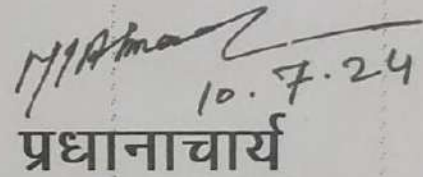 10.7.24
प्रधानाचार्य